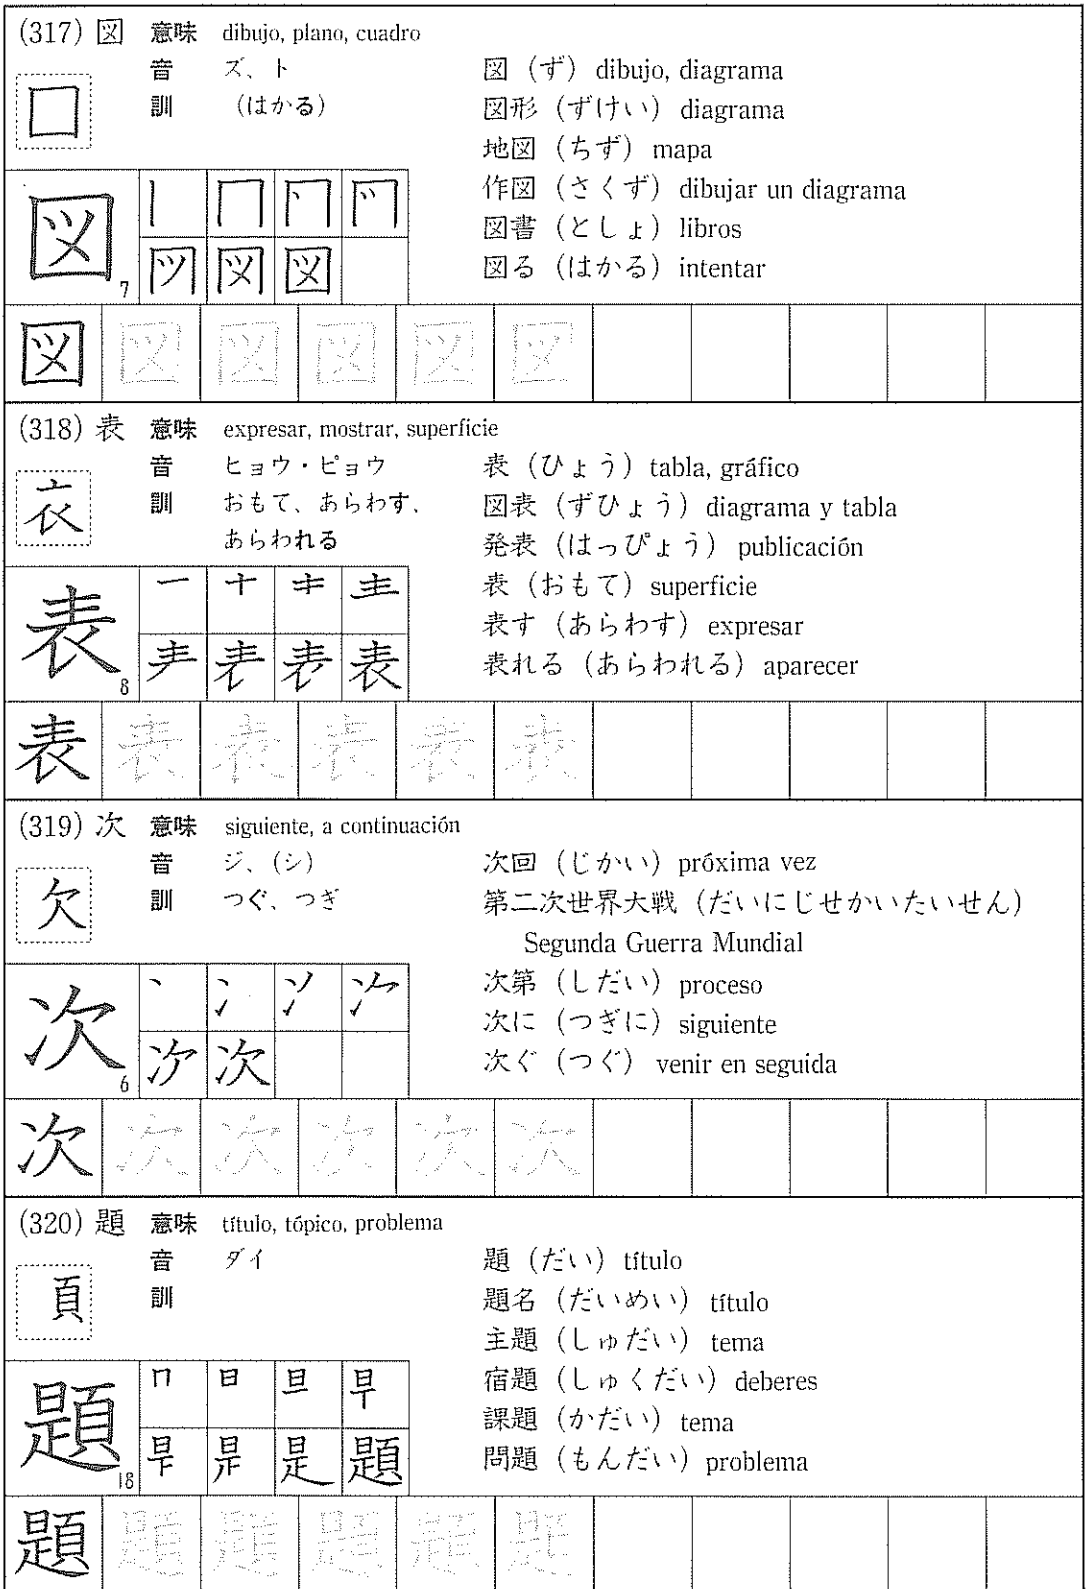 (317) 図 意味 dibujo, plano, cuadro
音 ズ、ト
訓 (はかる)
口
図（ず）dibujo, diagrama
図形（ずけい）diagrama
地図（ちず）mapa
作図（さくず）dibujar un diagrama
図書（としょ）libros
図る（はかる）intentar
図 7
図 図 図 図 図 図
(318) 表 意味 expresar, mostrar, superficie
音 ヒョウ・ピョウ
訓 おもて、あらわす、
あらわれる
表（ひょう）tabla, gráfico
図表（ずひょう）diagrama y tabla
発表（はっぴょう）publicación
表（おもて）superficie
表す（あらわす）expresar
表れる（あらわれる）aparecer
表 8
表 表 表 表 表 表
(319) 次 意味 siguiente, a continuación
音 ジ、(シ)
訓 つぐ、つぎ
欠
次回（じかい）próxima vez
第二次世界大戦（だいにじせかいたいせん）
Segunda Guerra Mundial
次第（しだい）proceso
次に（つぎに）siguiente
次ぐ（つぐ）venir en seguida
次 6
次 次 次 次 次 次
(320) 題 意味 título, tópico, problema
音 ダイ
訓
頁
題（だい）título
題名（だいめい）título
主題（しゅだい）tema
宿題（しゅくだい）deberes
課題（かだい）tema
問題（もんだい）problema
題 18
題 題 題 題 題 題